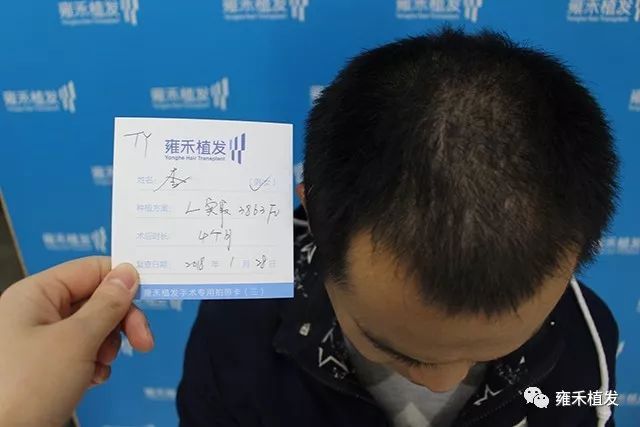 雍禾植发
雍禾植发
雍禾植发
雍禾植发
雍禾植发
雍禾植发
雍禾植发
TY
雍禾植发
Yonghe Hair Transplant
姓名: 李
种植方案: 实取 3863
术后时长: 4个月
复查日期: 2018 年 1 月 28 日
雍禾植发手术专用拍照卡(三)
雍禾植发
雍禾植发